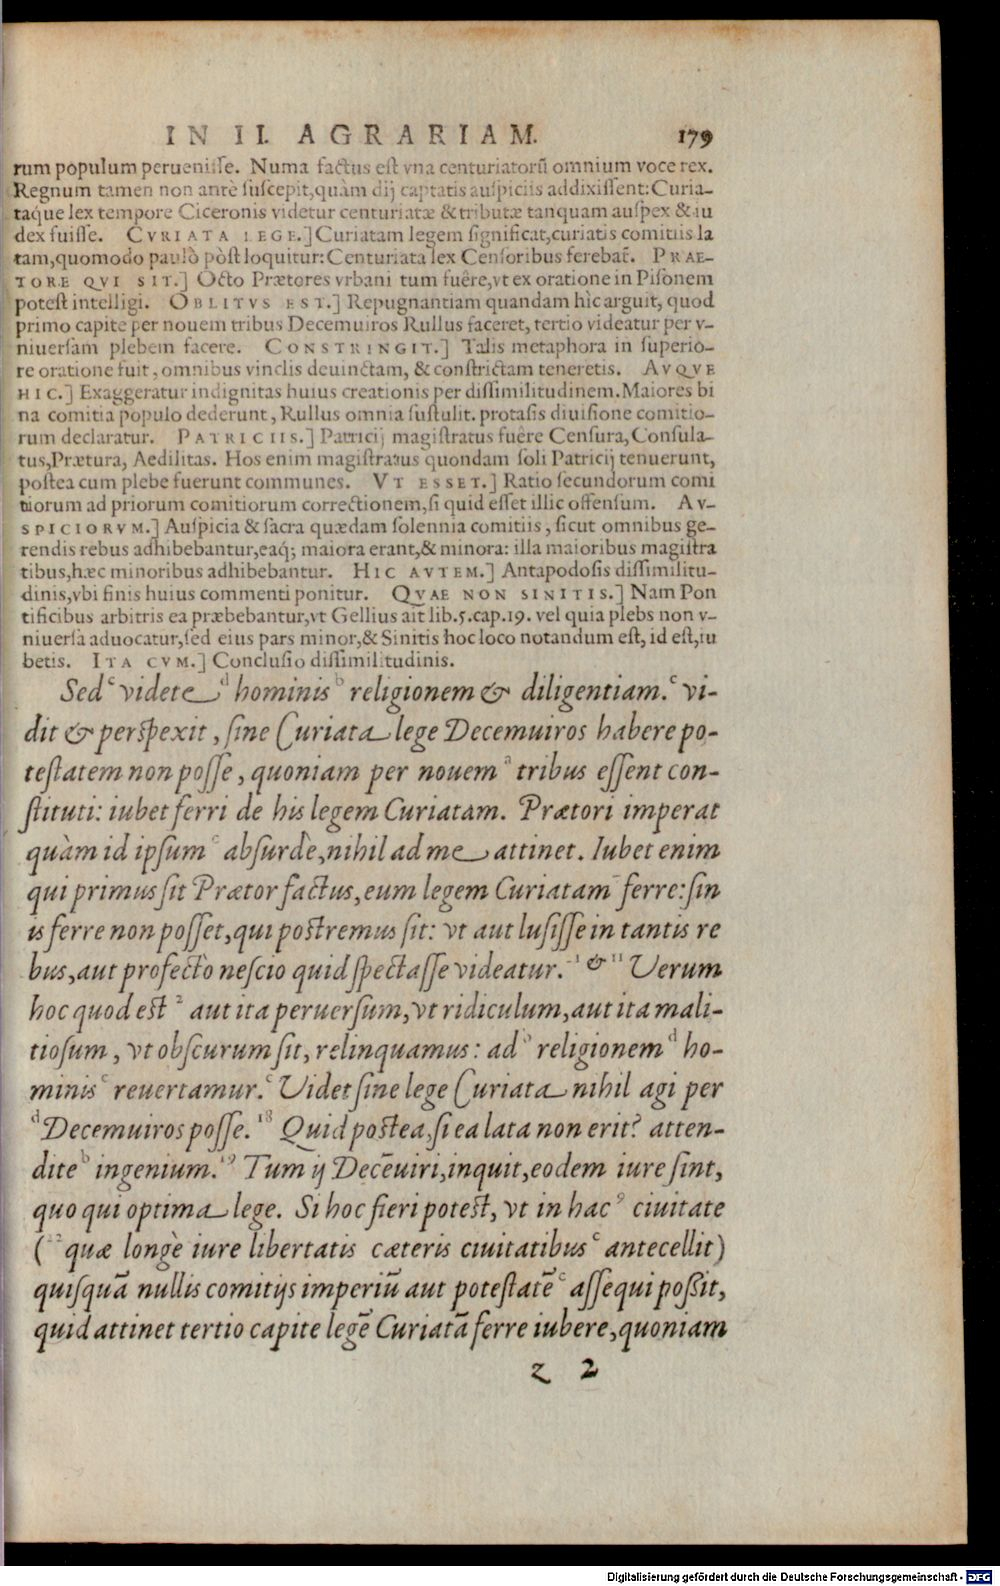 IN II. AGRARIAM. 179
rum populum peruenisse. Numa factus est vna centuriatorũ omnium voce rex.
Regnum tamen non antè suscepit, quàm dij captatis auspiciis addixissent: Curia-
taque lex tempore Ciceronis videtur centuriatæ & tributæ tanquam auspex & iu
dex fuisse. CVRIATA LEGE.] Curiatam legem significat, curiatis comitiis la
tam, quomodo paulò pòst loquitur: Centuriata lex Censoribus ferebat̃. PRAE-
TORE QVI SIT.] Octo Prætores vrbani tum fuêre, vt ex oratione in Pisonem
potest intelligi. OBLITVS EST.] Repugnantiam quandam hic arguit, quod
primo capite per nouem tribus Decemuiros Rullus faceret, tertio videatur per v-
niuersam plebem facere. CONSTRINGIT.] Talis metaphora in superio-
re oratione fuit, omnibus vinclis deuinctam, & constrictam teneretis. AVQVE
HIC.] Exaggeratur indignitas huius creationis per dissimilitudinem. Maiores bi
na comitia populo dederunt, Rullus omnia sustulit. protasis diuisione comitio-
rum declaratur. PATRICIIS.] Patricij magistratus fuêre Censura, Consula-
tus, Prætura, Aedilitas. Hos enim magistratus quondam soli Patricij tenuerunt,
postea cum plebe fuerunt communes. VT ESSET.] Ratio secundorum comi
tiorum ad priorum comitiorum correctionem, si quid esset illic offensum. AV-
SPICIORVM.] Auspicia & sacra quædam solennia comitiis, sicut omnibus ge-
rendis rebus adhibebantur, eaq; maiora erant, & minora: illa maioribus magistra
tibus, hæc minoribus adhibebantur. HIC AVTEM.] Antapodosis dissimilitu-
dinis, vbi finis huius commenti ponitur. QVAE NON SINITIS.] Nam Pon
tificibus arbitris ea præbebantur, vt Gellius ait lib. 5. cap. 19. vel quia plebs non v-
niuersa aduocatur, sed eius pars minor, & Sinitis hoc loco notandum est, id est, iu
betis. ITA CVM.] Conclusio dissimilitudinis.
Sed c videte d hominis b religionem & diligentiam. c vi-
dit & perspexit, sine Curiata lege Decemuiros habere po-
testatem non posse, quoniam per nouem a tribus essent con-
stituti: iubet ferri de his legem Curiatam. Prætori imperat
quàm id ipsum c absurdè, nihil ad me attinet. Iubet enim
qui primus sit Prætor factus, eum legem Curiatam ferre: sin
is ferre non posset, qui postremus sit: vt aut lusisse in tantis re
bus, aut profectò nescio quid spectasse videatur. 1 & 11 Verum
hoc quod est 2 aut ita peruersum, vt ridiculum, aut ita mali-
tiosum, vt obscurum sit, relinquamus: ad b religionem d ho-
minis c reuertamur. c Videt sine lege Curiata nihil agi per
d Decemuiros posse. 18 Quid postea, si ea lata non erit? atten-
dite b ingenium. 19 Tum ij Decẽuiri, inquit, eodem iure sint,
quo qui optima lege. Si hoc fieri potest, vt in hac 9 ciuitate
( 22 quæ longè iure libertatis cæteris ciuitatibus c antecellit)
quisquã nullis comitijs imperiũ aut potestatẽ c assequi possit,
quid attinet tertio capite legẽ Curiatã ferre iubere, quoniam
z 2
Digitalisierung gefördert durch die Deutsche Forschungsgemeinschaft - DFG